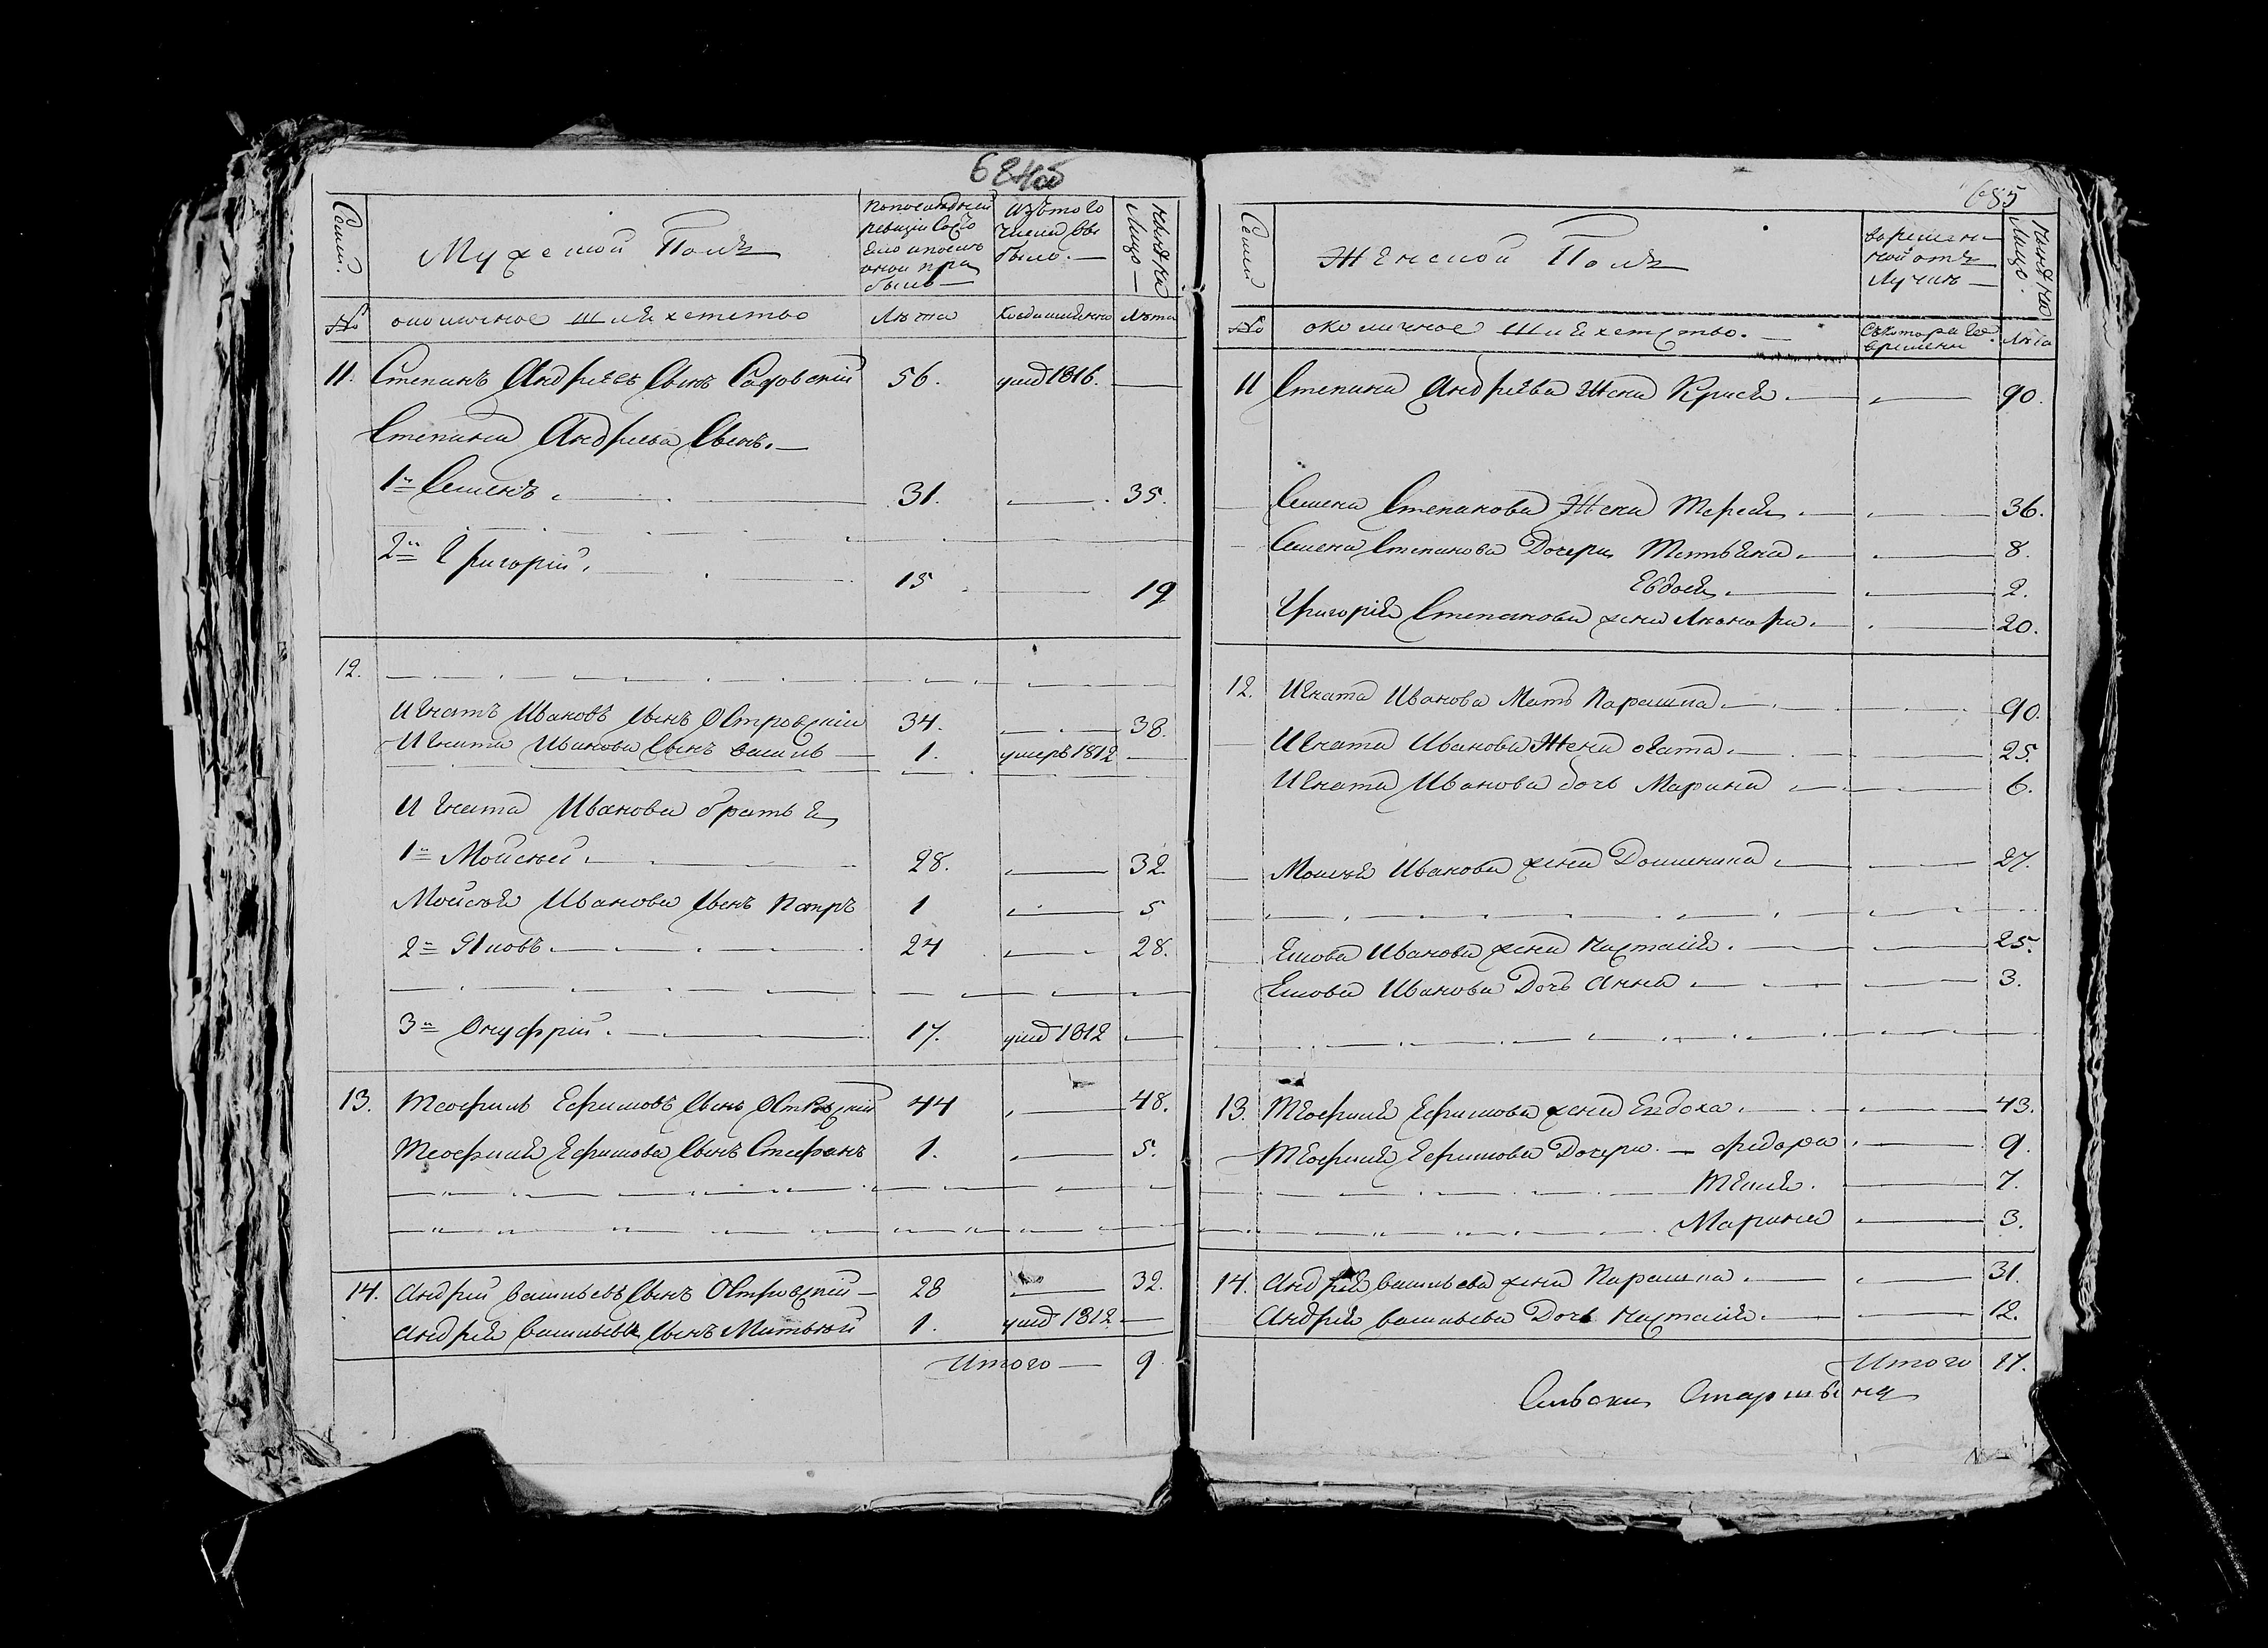 684об
Семьи.
Мужеской Полъ
По последней
ревизiи состо
яло и после
оной при
было
Изъ того
числа вы
было.
Ныне на
Лицо
№
околичное Шляхетство
Лѣта
Когда именно
Лѣта
11. Степанъ Андрѣевъ Сынъ Садовскiй 56. умер 1816.
Степана Андреева Сынъ.
1й Семенъ 31. 35.
2й Григорiй. 15 19
12.
Игнатъ Ивановъ Сынъ Островскiй 34. 38.
Игната Иванова Сынъ Василь 1. умеръ 1812
Игната Иванова братья
1й Мойсѣй 28. 32.
Мойсѣя Иванова Сынъ Петръ 1 5
2й Яковъ 24 28.
3й Онуфрiй. 17. умер 1812
13. Теофиль Ефимовъ Сынъ Островскiй 44 48.
Теофиля Ефимова Сынъ Стефанъ 1. 5.
14. Андрей Васильевъ Сынъ Островскiй 28 32.
Андрея Васильева Сынъ Матьвей 1. умер 1812
Итого 9
685
Семьи
Женской Полъ
во времен
ной отъ
Лучкѣ
Ныне на
Лицо.
№
околичное Шляхетство.
Съ котораго
времени
Лѣта
11 Степана Андрѣева Жена Крися 90.
Семена Степанова Жена Терея 36.
Семена Степанова Дочери Тетьяна 8.
Евдося 2.
Григорiя Степанова жена Лионора. 20.
12. Игната Иванова Мать Парашка 90.
Игната Иванова Жена Агата 25.
Игната Иванова дочь Марина 6.
Мойсѣя Иванова жена Доминика 27.
Якова Иванова жена Настасiя. 25.
Якова Иванова Дочь Анна 3.
13. Теофиля Ефимова жена Евдоха 43.
Теофиля Ефимова Дочери Федора 9.
Текля. 7.
Марина 3.
14. Андрея Васильева жена Парашка 31.
Андрея Васильева Дочь Настасiя 12.
Итого 17.
Сельски Старшына